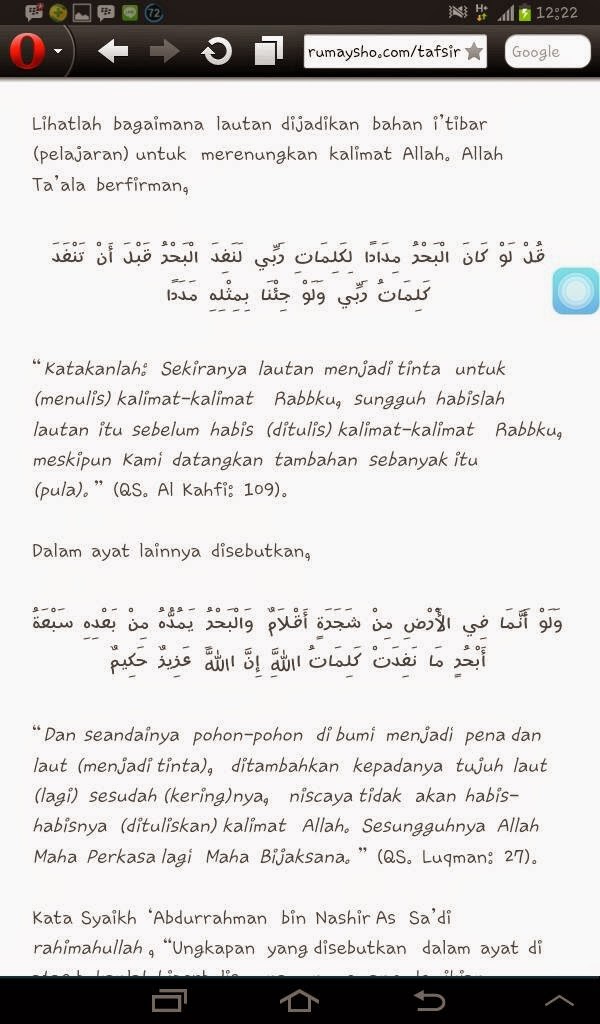 72
H+
12:22
rumaysho.com/tafsir
Google
Lihatlah bagaimana lautan dijadikan bahan i'tibar
(pelajaran) untuk merenungkan kalimat Allah. Allah
Ta'ala berfirman,
قُلْ لَوْ كَانَ الْبَحْرُ مِدَادًا لِكَلِمَاتِ رَبِّي لَنَفِدَ الْبَحْرُ قَبْلَ أَنْ تَنْفَدَ
كَلِمَاتُ رَبِّي وَلَوْ جِئْنَا بِمِثْلِهِ مَدَدًا
“Katakanlah: Sekiranya lautan menjadi tinta untuk
(menulis) kalimat-kalimat Rabbku, sungguh habislah
lautan itu sebelum habis (ditulis) kalimat-kalimat Rabbku,
meskipun Kami datangkan tambahan sebanyak itu
(pula).” (QS. Al Kahfi: 109).
Dalam ayat lainnya disebutkan,
وَلَوْ أَنَّمَا فِي الْأَرْضِ مِنْ شَجَرَةٍ أَقْلَامٌ وَالْبَحْرُ يَمُدُّهُ مِنْ بَعْدِهِ سَبْعَةُ
أَبْحُرٍ مَا نَفِدَتْ كَلِمَاتُ اللَّهِ إِنَّ اللَّهَ عَزِيزٌ حَكِيمٌ
“Dan seandainya pohon-pohon di bumi menjadi pena dan
laut (menjadi tinta), ditambahkan kepadanya tujuh laut
(lagi) sesudah (kering)nya, niscaya tidak akan habis-
habisnya (dituliskan) kalimat Allah. Sesungguhnya Allah
Maha Perkasa lagi Maha Bijaksana.” (QS. Luqman: 27).
Kata Syaikh ‘Abdurrahman bin Nashir As Sa'di
rahimahullah, “Ungkapan yang disebutkan dalam ayat di